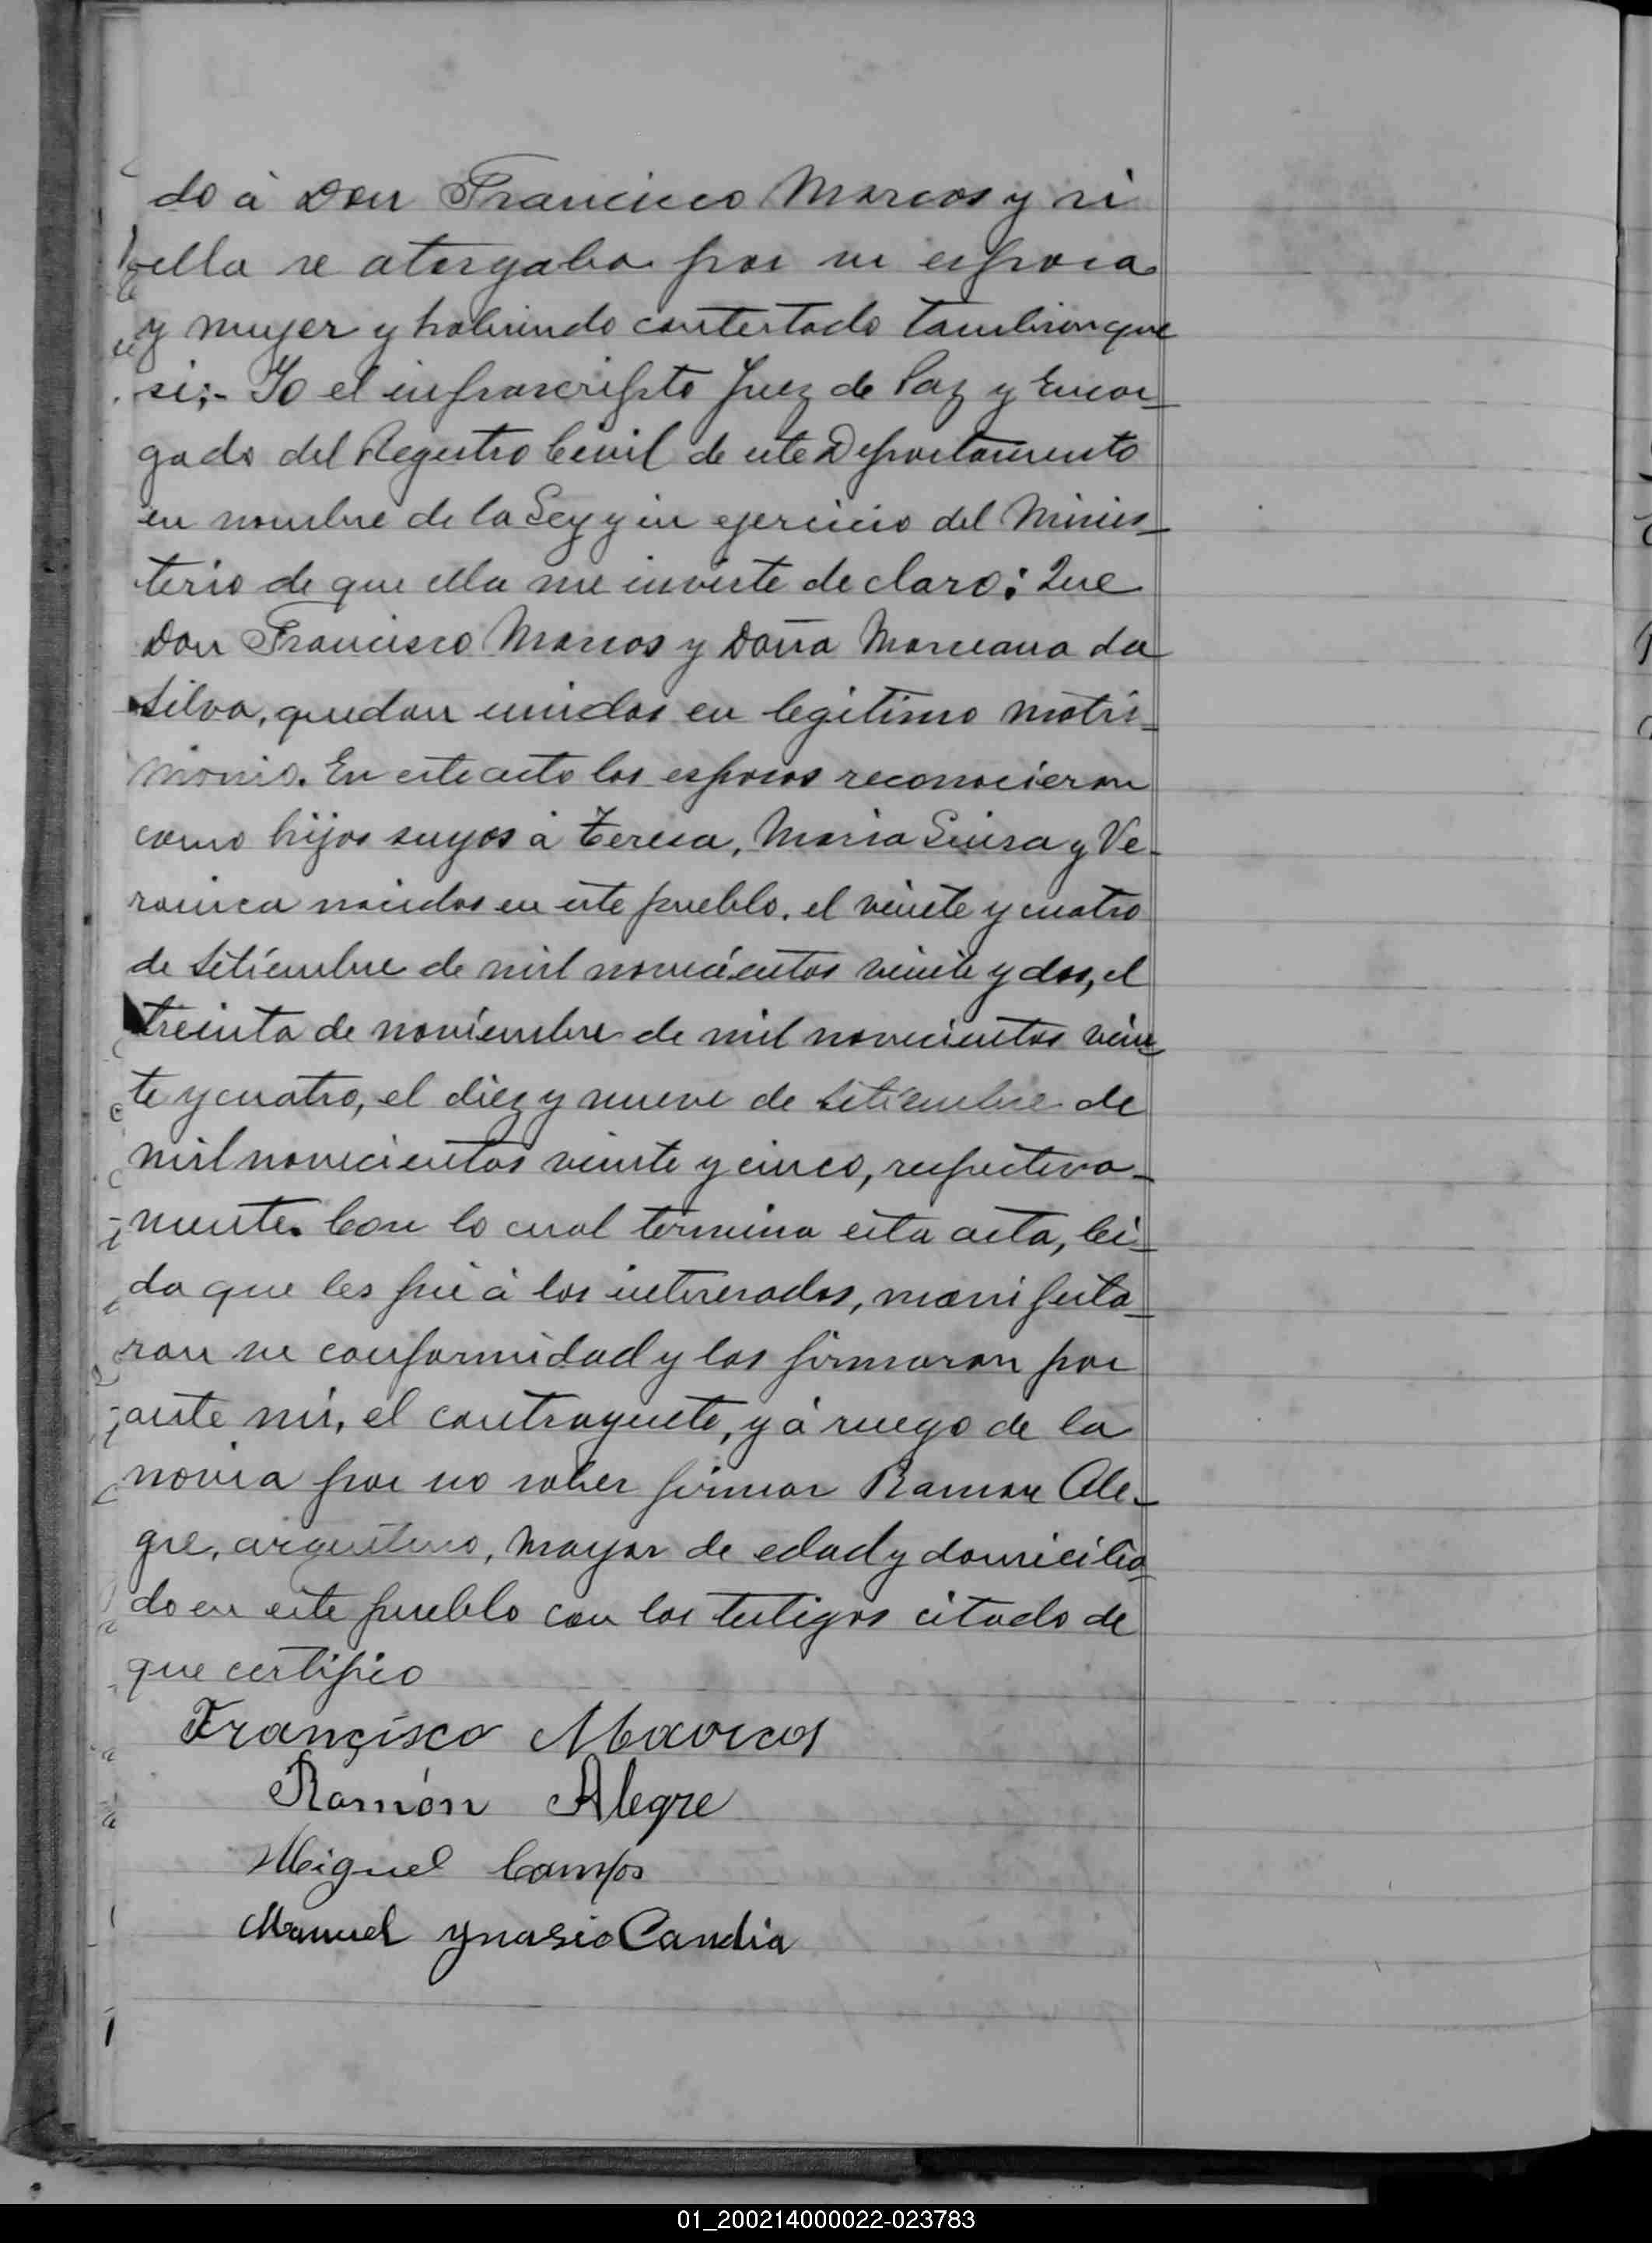 do á Don Francisco Marcos y si
ella se otorgaba por su esposa
y mujer y habiendo contestado tambien que
si;- Yo el infrascripto Juez de Paz y Encar-
gado del Registro Civil de este Departamento
en nombre de la Ley y en ejercicio del Minis-
terio de que ella me inviste declaro: Que
Don Francisco Marcos y Doña Marciana da
Silva, quedan unidos en legítimo matri-
monio. En este acto los esposos reconocieron
como hijos suyos á Teresa, Maria Luisa y Ve-
ronica nacidas en este pueblo, el veinte y cuatro
de Setiembre de mil novecientos veinte y dos, el
treinta de noviembre de mil novecientos vein
te y cuatro, el diez y nueve de Setiembre de
mil novecientos veinte y cinco, respectiva-
mente. Con lo cual termina esta acta, lei-
da que les fué á los interesados, manifesta-
ron su conformidad y los firmaron por
ante mí, el contrayente, y á ruego de la
novia por no saber firmar Ramon Ale-
gre, argentino, mayor de edad y domicilia-
do en este pueblo con los testigos citado de
que certifico
Françisco Marcos
Ramón Alegre
Miguel Campos
Manuel ynasio Candia
01_200214000022-023783